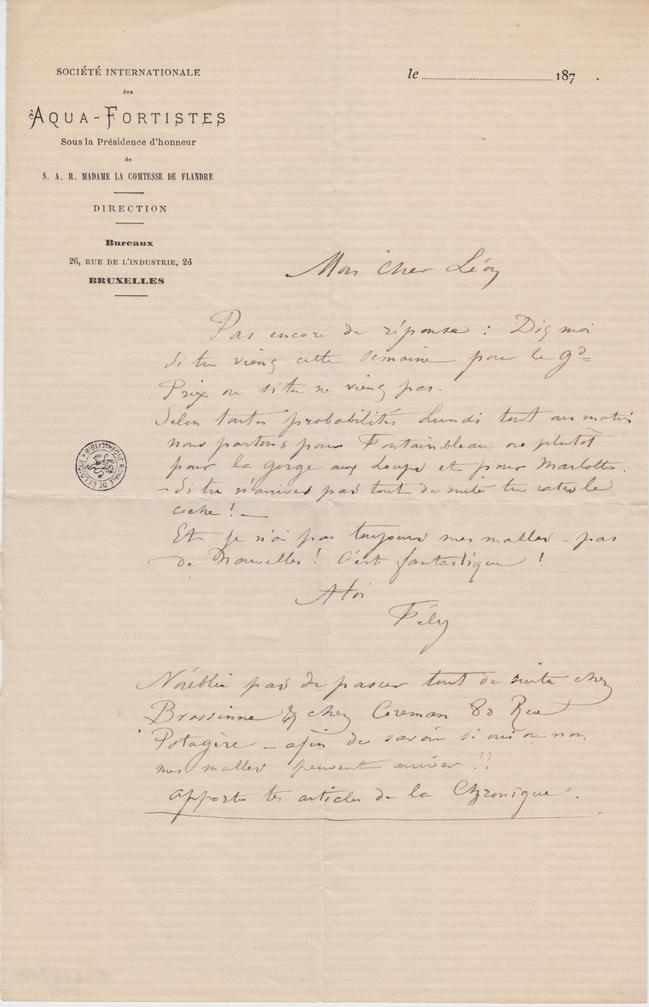 SOCIÉTÉ INTERNATIONALE
des
AQUA-FORTISTES
Sous la Présidence d'honneur
de
S. A. R. MADAME LA COMTESSE DE FLANDRE
DIRECTION
Bureaux
26, RUE DE L'INDUSTRIE, 26
BRUXELLES
le 187 .
Mon cher Léon
Pas encore de réponse : Dis moi
si tu viens cette semaine pour le gd
Prix ou si tu ne viens pas.
Selon toutes probabilités Lundi tout au matin
nous partons pour Fontainbleau ou plutôt
pour la gorge aux Loups et pour Marlotte.
– Si tu n'arrives pas tout de suite tu rates le
coche ! –
Et je n'ai pas toujours mes malles – pas
de Nouvelles ! C'est fantastique !
A toi
Fély
N'oublie pas de passer tout de suite chez
Brassinne & chez Coreman 80 Rue
Potagère – afin de savoir si oui ou non
mes malles peuvent arriver !!
apporte tes articles de la Chronique.
BIBLIOTHÈQUE ROYALE DE BELGIQUE